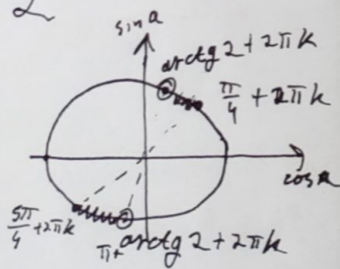 2
sin a
arctg 2 + 2πk
π/4 + 2πk
cos a
5π/4 + 2πk
π + arctg 2 + 2πk